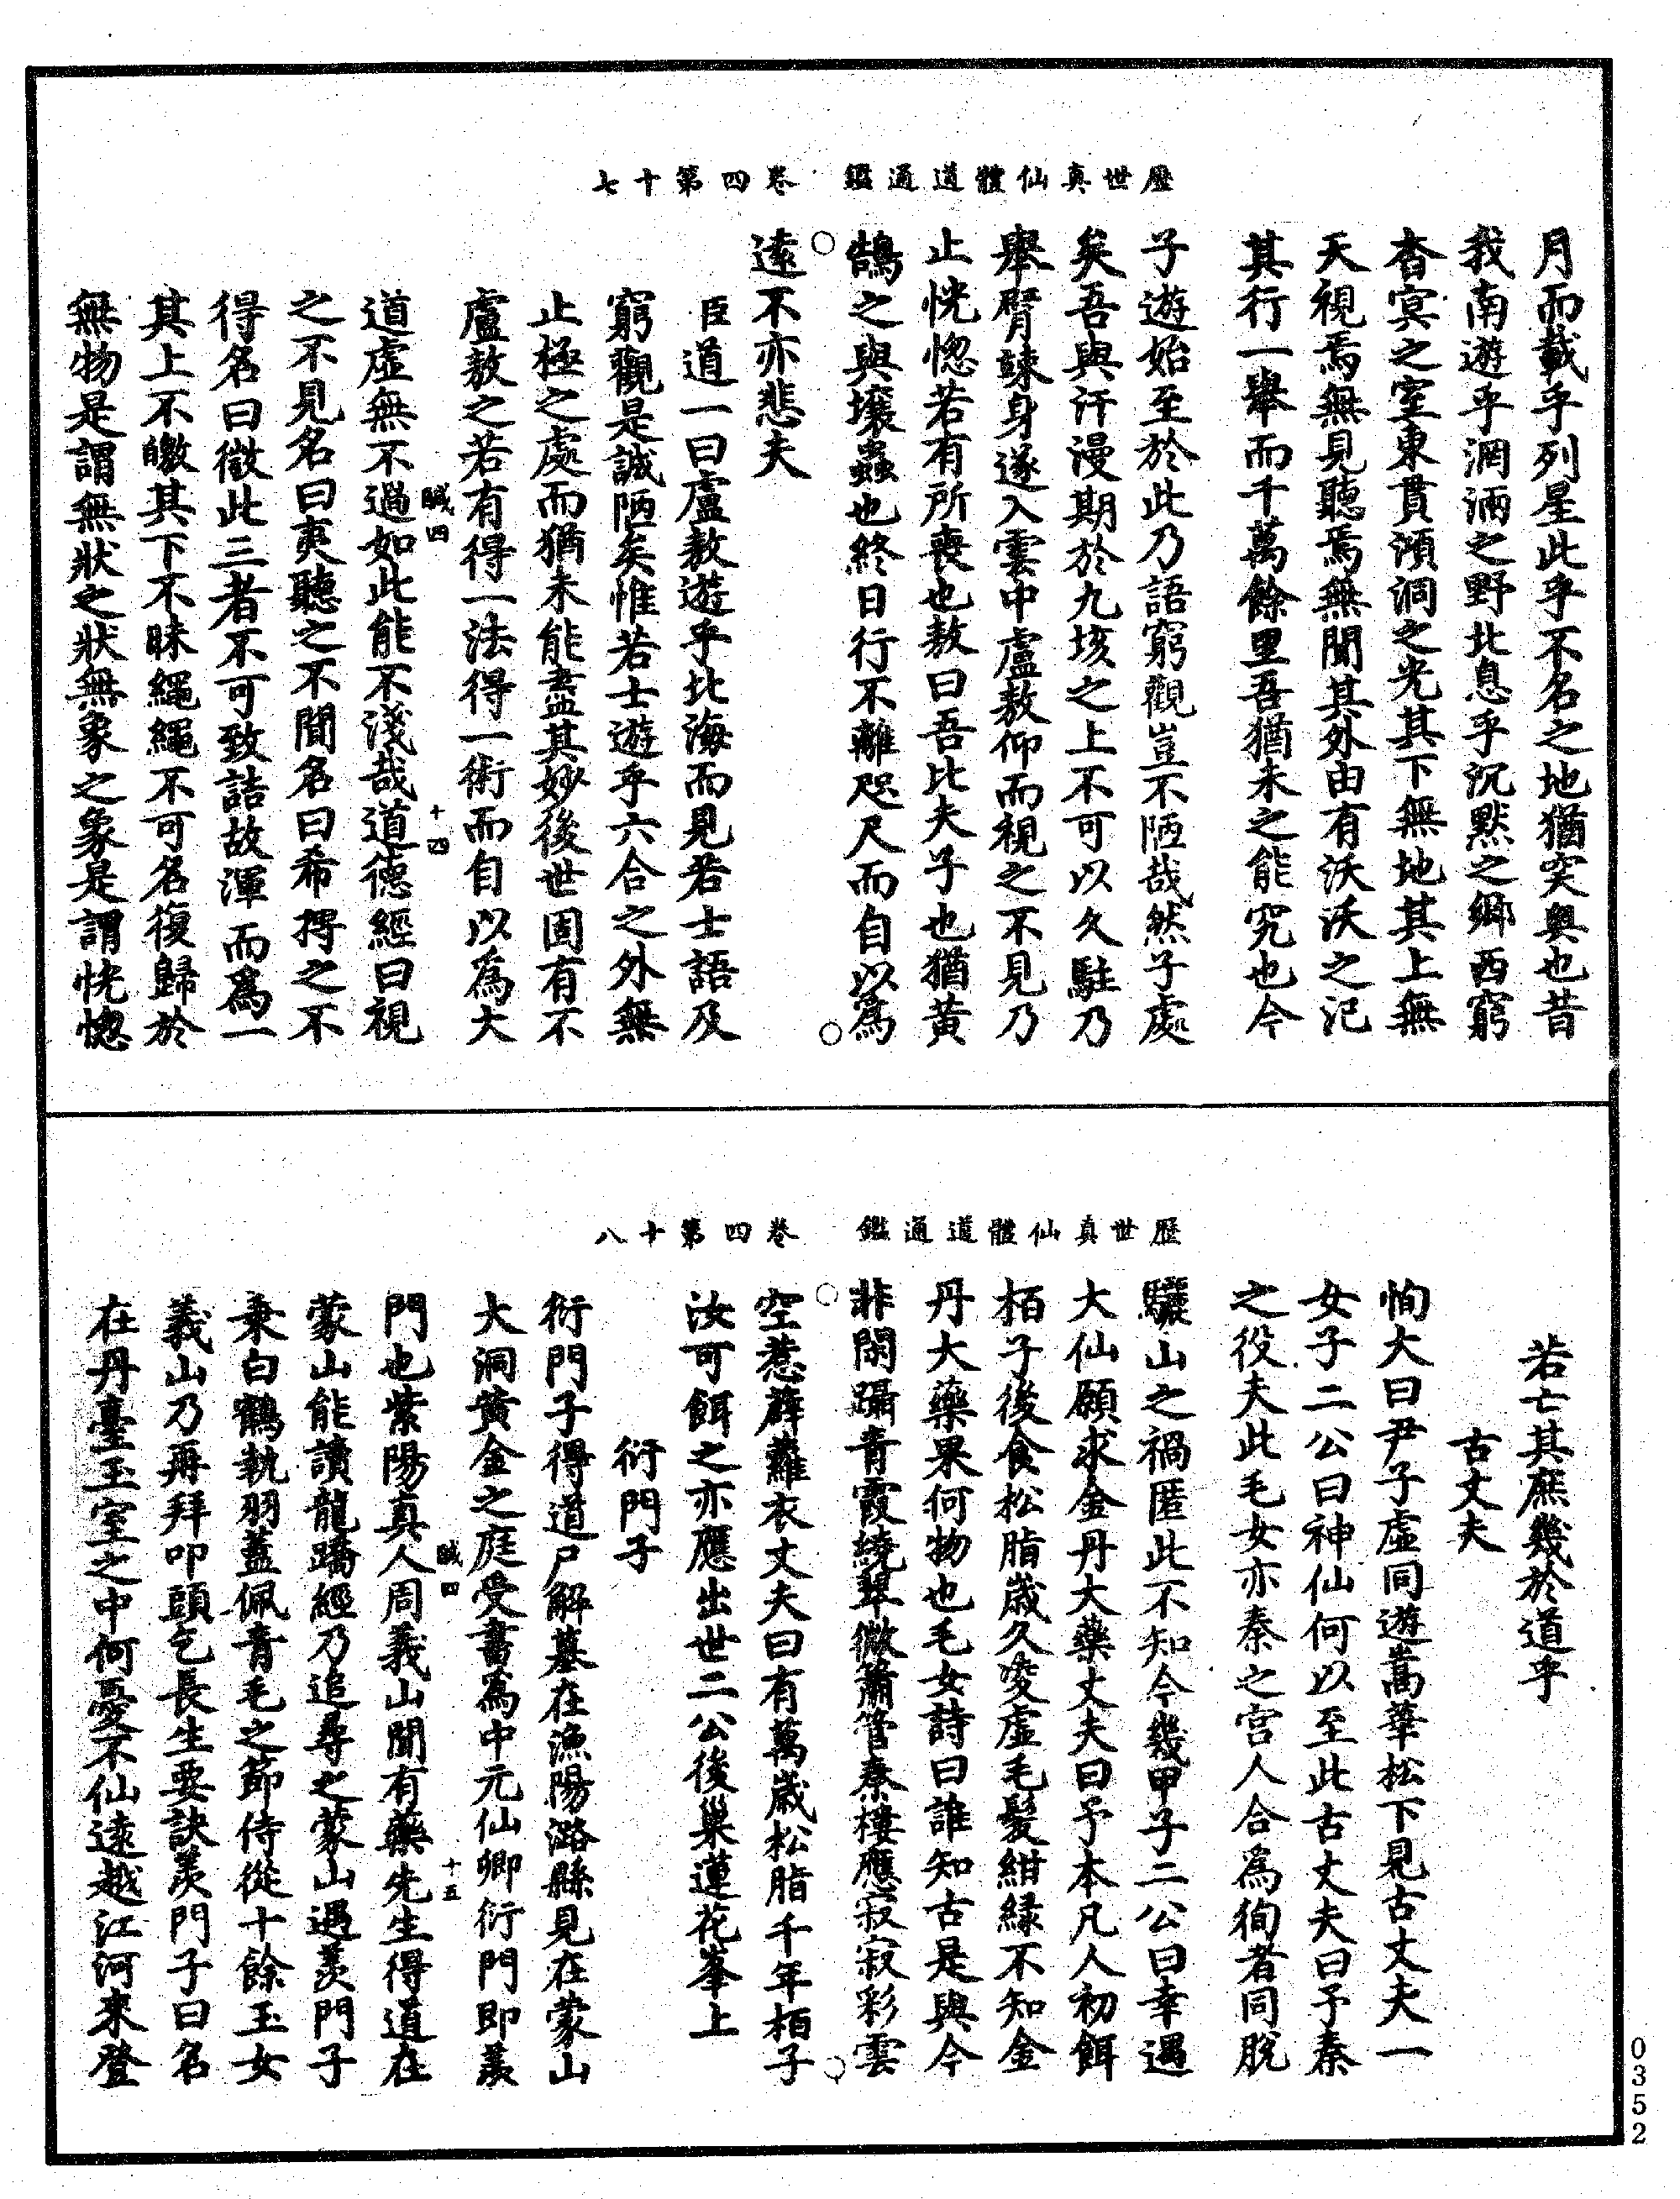 歷世真仙體道通鑑　卷四第十七
月而載乎列星此乎不名之地猶突奥也昔
我南遊乎洞㴐之野北息乎沉默之鄉西窮
杳冥之室東貫澒洞之光其下無地其上無
天視焉無見聽焉無聞其外由有沃沃之汜
其行一舉而千萬餘里吾猶未之能究也今
子遊始至於此乃語窮觀豈不陋哉然子處
矣吾與汗漫期於九垓之上不可以久駐乃
舉臂竦身遂入雲中盧敖仰而視之不見乃
止恍惚若有所喪也敖曰吾比夫子也猶黃
鵠之與壤蟲也終日行不離咫尺而自以為
遠不亦悲夫
臣道一曰盧敖遊乎北海而見若士語及
窮觀是誠陋矣惟若士遊乎六合之外無
止極之處而猶未能盡其妙後世固有不
盧敖之若有得一法得一術而自以為大
鹹四　十四
道虛無不過如此能不淺哉道德經曰視
之不見名曰夷聽之不聞名曰希搏之不
得名曰微此三者不可致詰故渾而為一
其上不皦其下不昧繩繩不可名復歸於
無物是謂無狀之狀無象之象是謂恍惚
歷世真仙體道通鑑　卷四第十八
若亡其庶幾於道乎
古丈夫
恂大曰尹子虛同遊嵩華松下見古丈夫一
女子二公曰神仙何以至此古丈夫曰予秦
之役夫此毛女亦秦之宮人合為徇者同脫
驪山之禍匿此不知今幾甲子二公曰幸遇
大仙願求金丹大藥丈夫曰予本凡人初餌
栢子後食松脂歲久凌虛毛髮紺綠不知金
丹大藥果何物也毛女詩曰誰知古是與今
非閑躡青霞繞翠微簫管秦樓應寂寂彩雲
空惹薜蘿衣丈夫曰有萬歲松脂千年栢子
汝可餌之亦應出世二公後巢蓮花峯上
衍門子
衍門子得道尸解墓在漁陽潞縣見在蒙山
大洞黃金之庭受書為中元仙卿衍門即羨
鹹四　十五
門也紫陽真人周義山聞有藥先生得道在
蒙山能讀龍蹻經乃追尋之蒙山遇羨門子
乘白鶴執羽蓋佩青毛之節侍從十餘玉女
義山乃再拜叩頭乞長生要訣羨門子曰名
在丹臺玉室之中何憂不仙遠越江河來登
0352